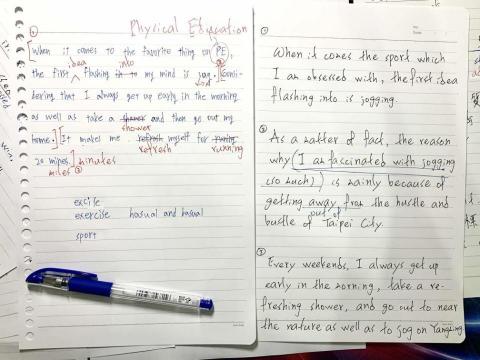 Physical Education
① When it comes to the favorite thing on PE,
idea into
the first flashing in to my mind is jog. Consi-
dering that I always get up early in the morning
as well as take a shower and then go out my
shower
home. It makes me refresh myself for runing
refresh running
20 mines. minutes
miles
excise
exercise hasual and basual
sport
① When it comes the sport which
I am obsessed with, the first idea
flashing into is jogging.
② As a matter of fact, the reason
why (I am fascinated with jogging
so much) is mainly because of
getting away from the hustle and
out of
bustle of Taipei City.
③ Every weekends, I always get up
early in the morning, take a re-
freshing shower, and go out to near
the nature as well as to jog on Yangming